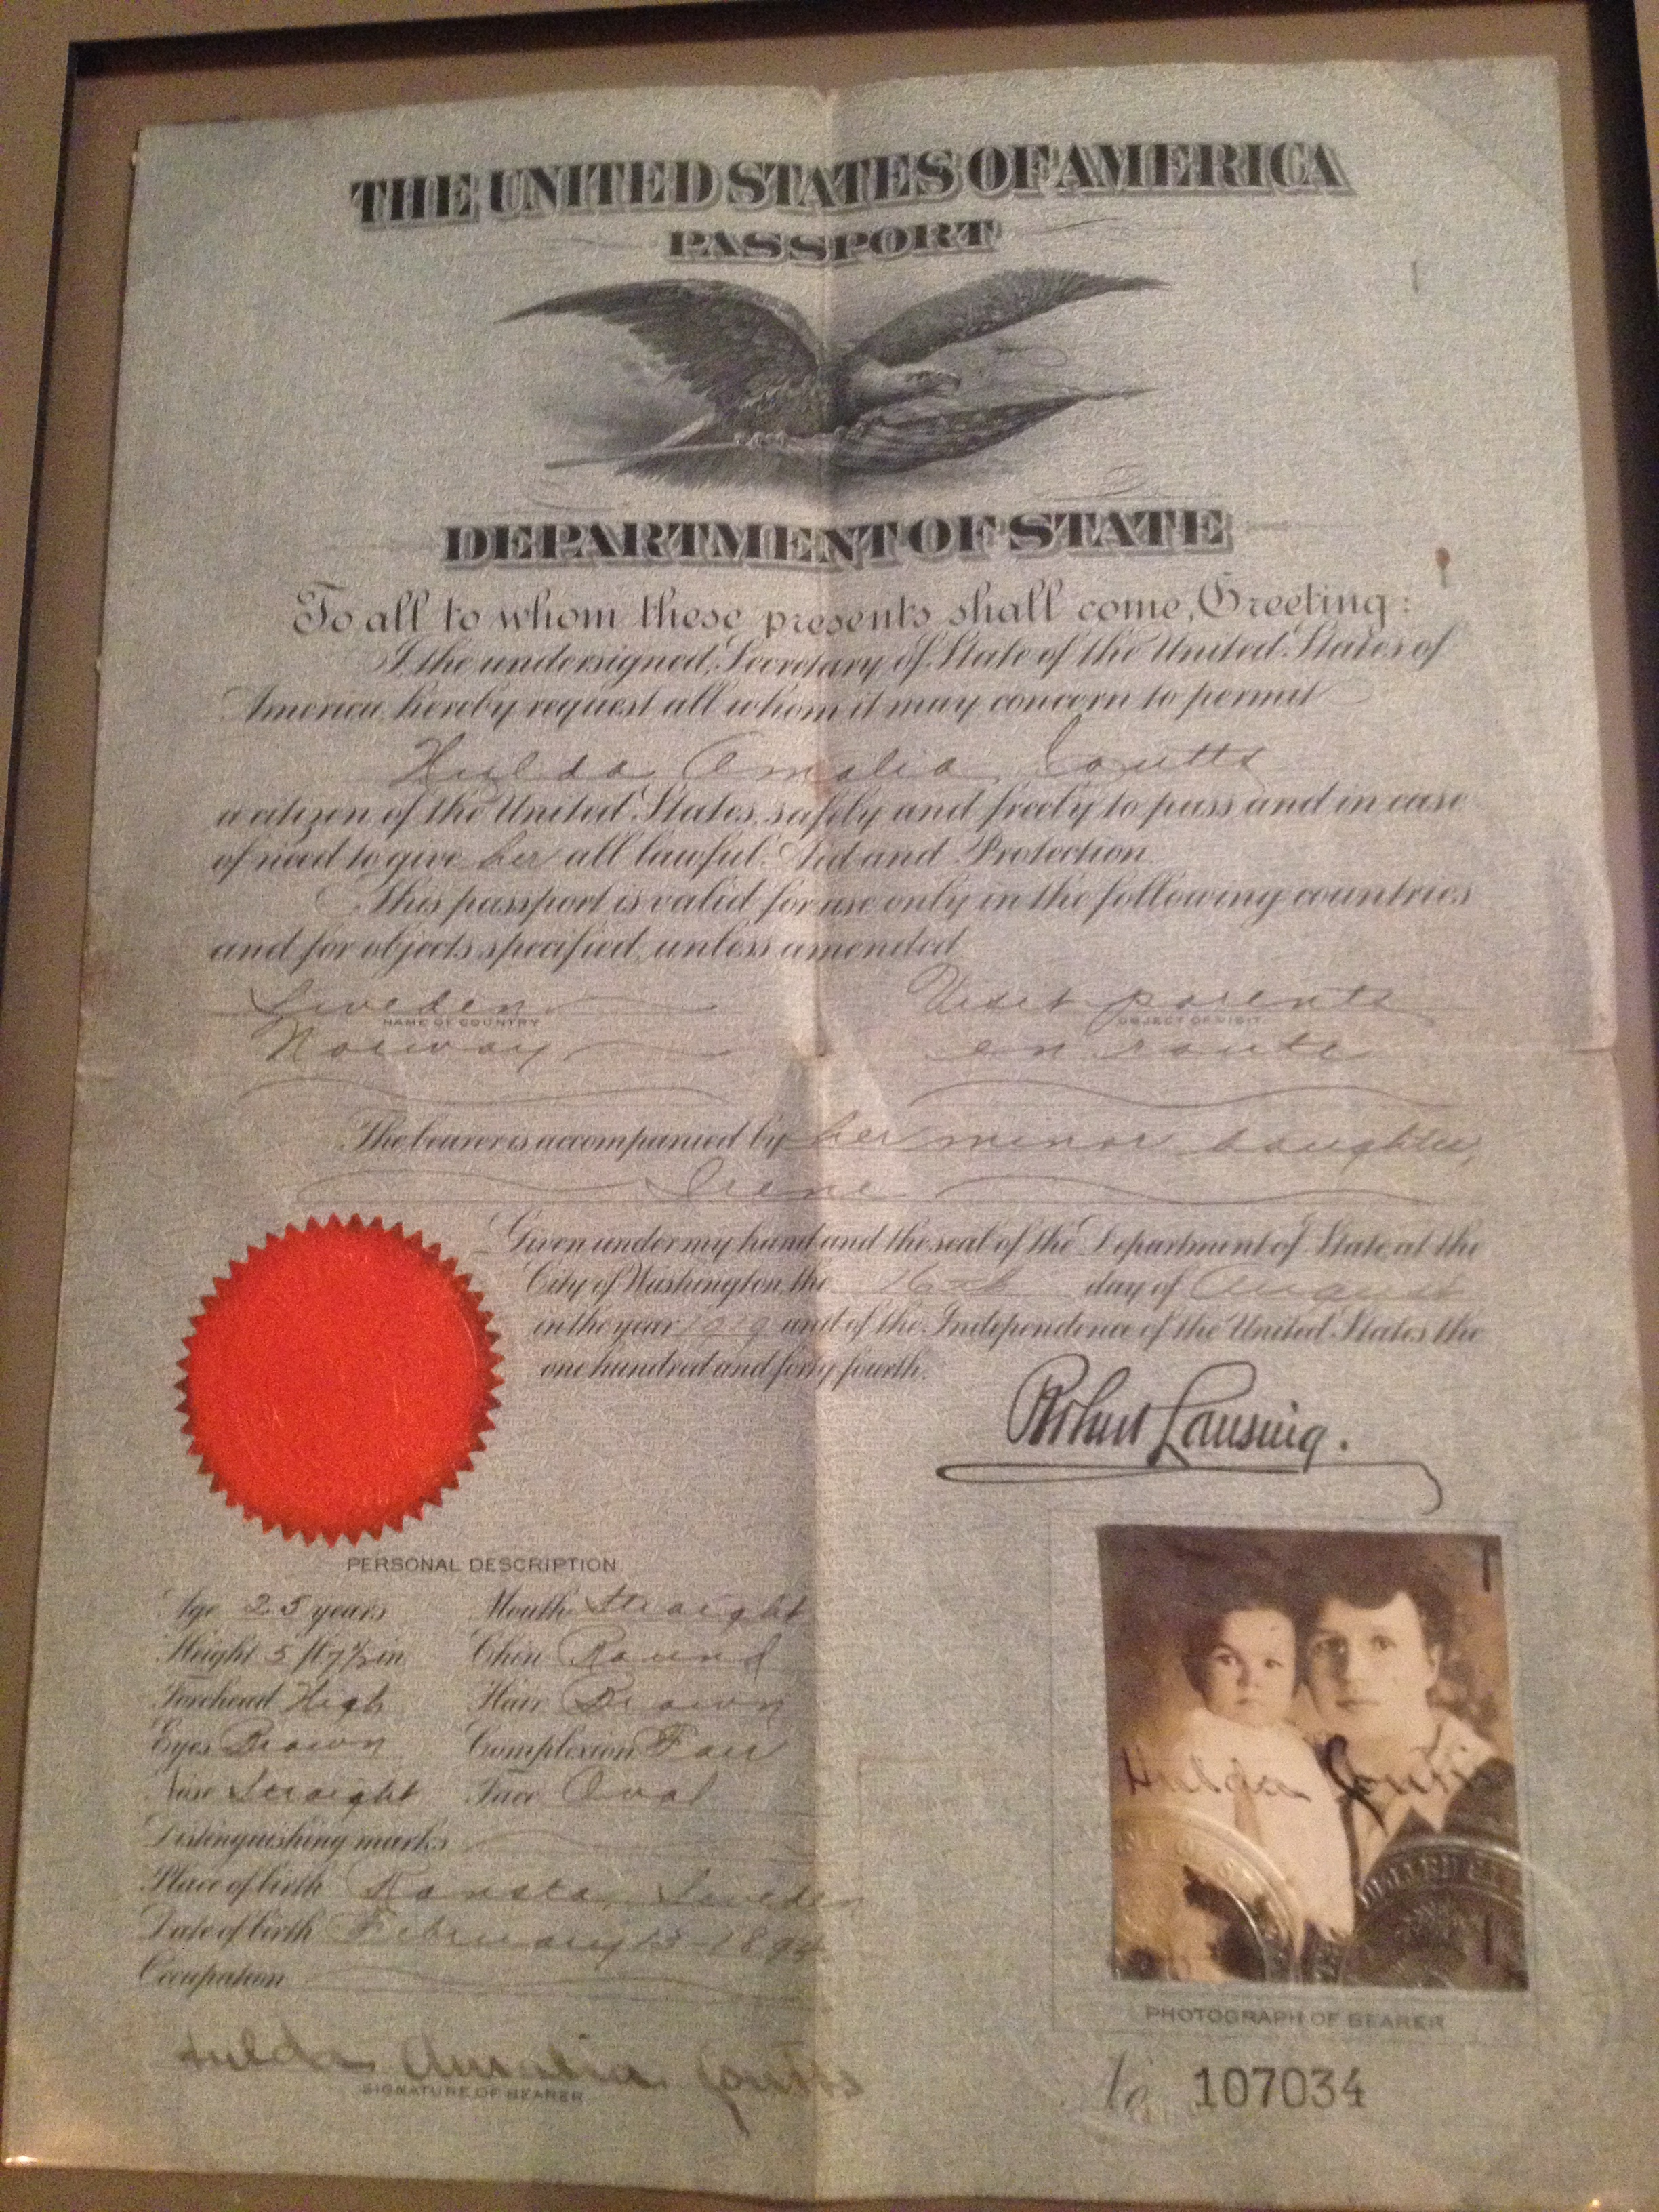 THE UNITED STATES OF AMERICA
PASSPORT
DEPARTMENT OF STATE
To all to whom these presents shall come, Greeting:
I, the undersigned, Secretary of State of the United States of
America, hereby request all whom it may concern to permit
Hulda Amalia Coutts
a citizen of the United States, safely and freely to pass and in case
of need to give her all lawful Aid and Protection
This passport is valid for use only in the following countries
and for objects specified, unless amended
Sweden Visit parents
NAME OF COUNTRY OBJECT OF VISIT
Norway en route
The bearer is accompanied by her minor daughter,
Irene
Given under my hand and the seal of the Department of State at the
City of Washington, the 16th day of August
in the year 1919 and of the Independence of the United States the
one hundred and forty fourth.
Robert Lansing.
PERSONAL DESCRIPTION
Age 25 years Mouth Straight
Height 5 ft 7½ in Chin Round
Forehead High Hair Brown
Eyes Brown Complexion Fair
Nose Straight Face Oval
Distinguishing marks
Place of birth Ransta, Sweden
Date of birth February 13 1894
Occupation
Hulda Amalia Coutts
SIGNATURE OF BEARER
Hulda Coutts
PHOTOGRAPH OF BEARER
No 107034